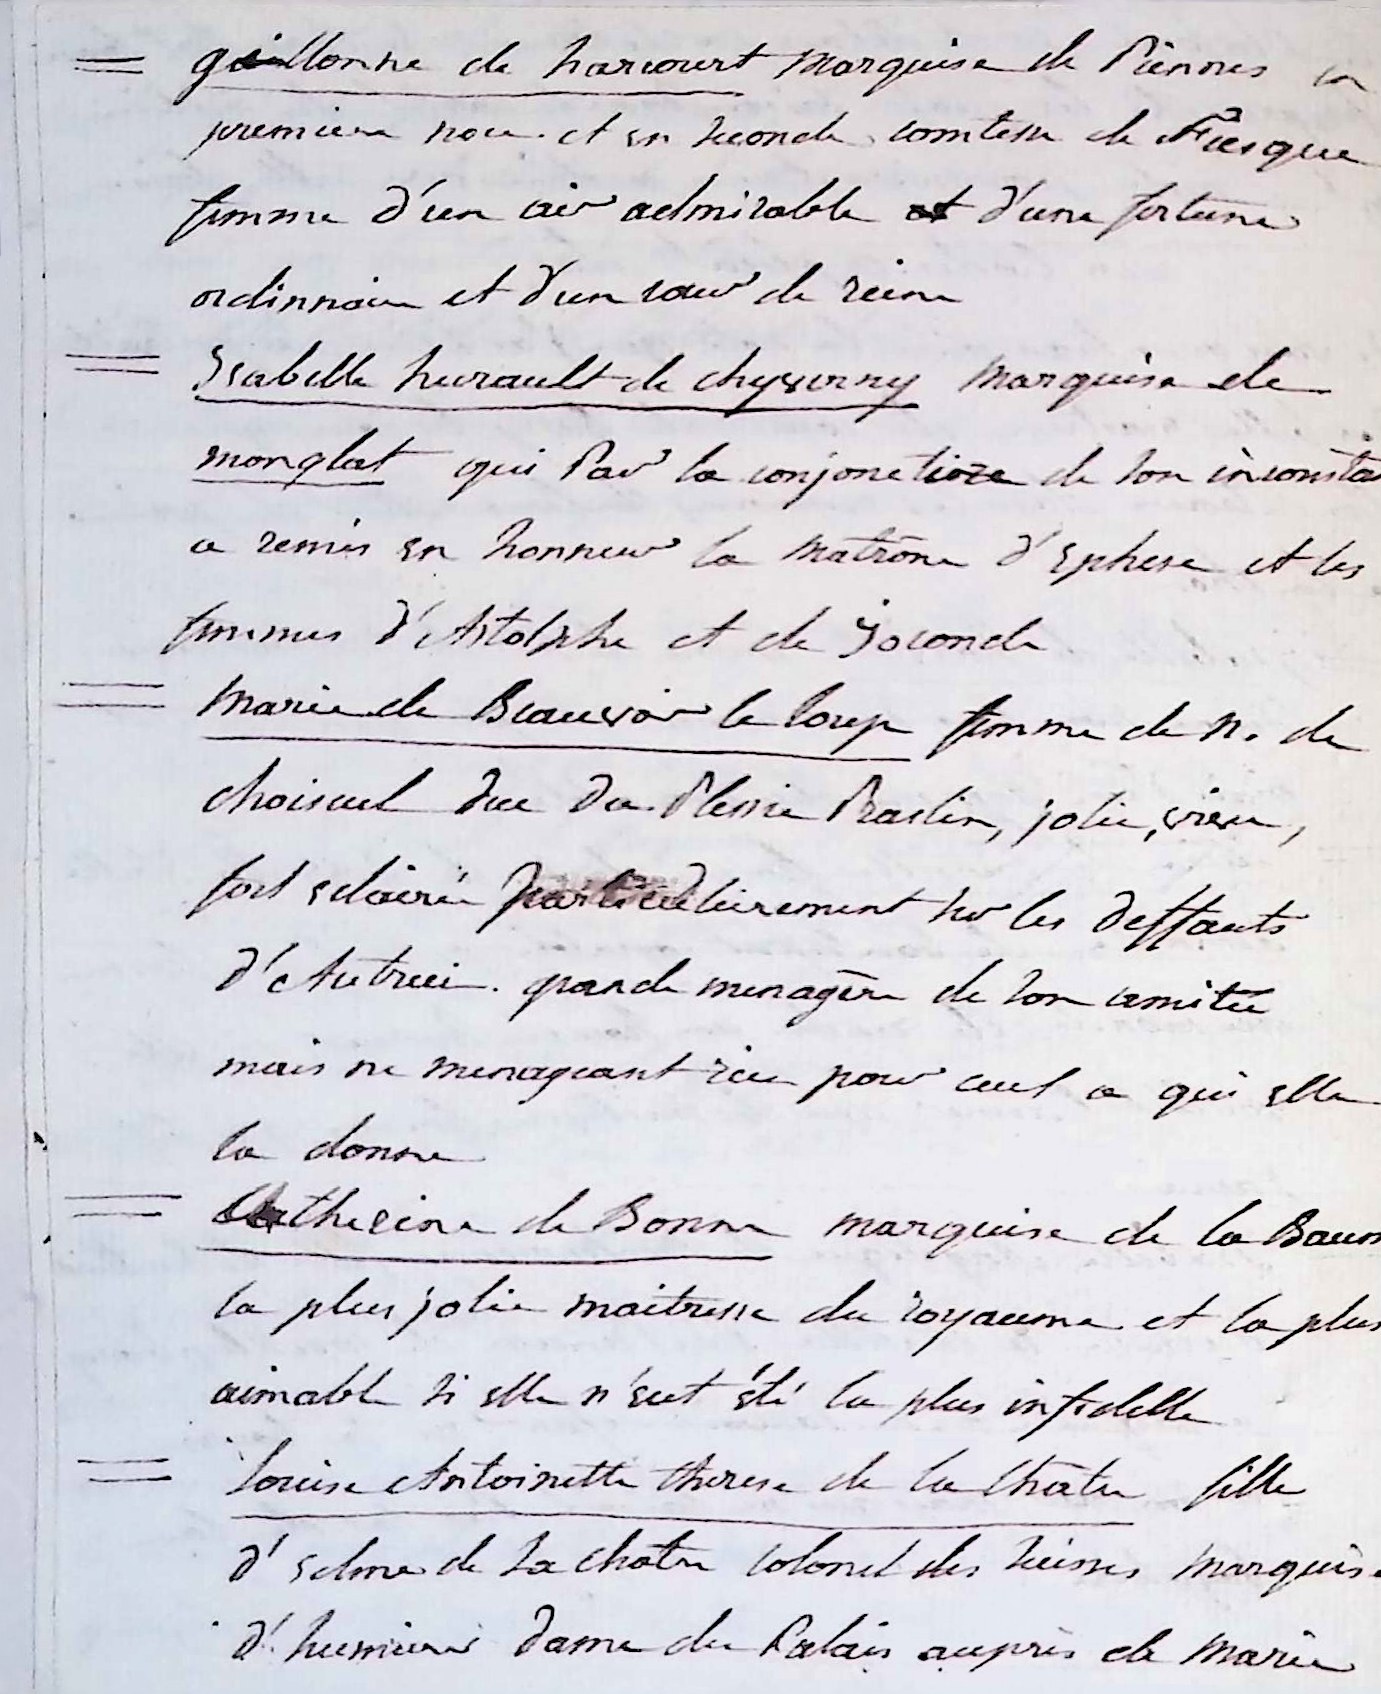 guillonne de harcourt marquise de Piennes en
premiere noce. et en seconde comtesse de Fiesque
femme d'un air admirable et d'une fortune
ordinnaire et d'un cœur de reine
Isabelle hurault de chyverny marquise de
monglat qui Par la conjonction de son inconsta
a remis en honneur la matrône d'Ephese et les
femmes d'Astolphe et de Joconde
Marie de Beauvoir le loup femme de n. de
choiseul duc du Plessie Praslin, jolie, vive,
fort eclairée particulierement sur les deffauts
d'Autrui. grande menagère de son amitié
mais ne menageant rien pour ceux a qui elle
la donne
Catherine de Bonne marquise de la Baum
la plus jolie maitresse du royaume et la plus
aimable si elle n'eut été la plus infidelle
Louise Antoinette therese de la Châtre fille
d'Edme de La chatre colonel des suisses marquise
d'humieres dame du Palais auprès de Marie